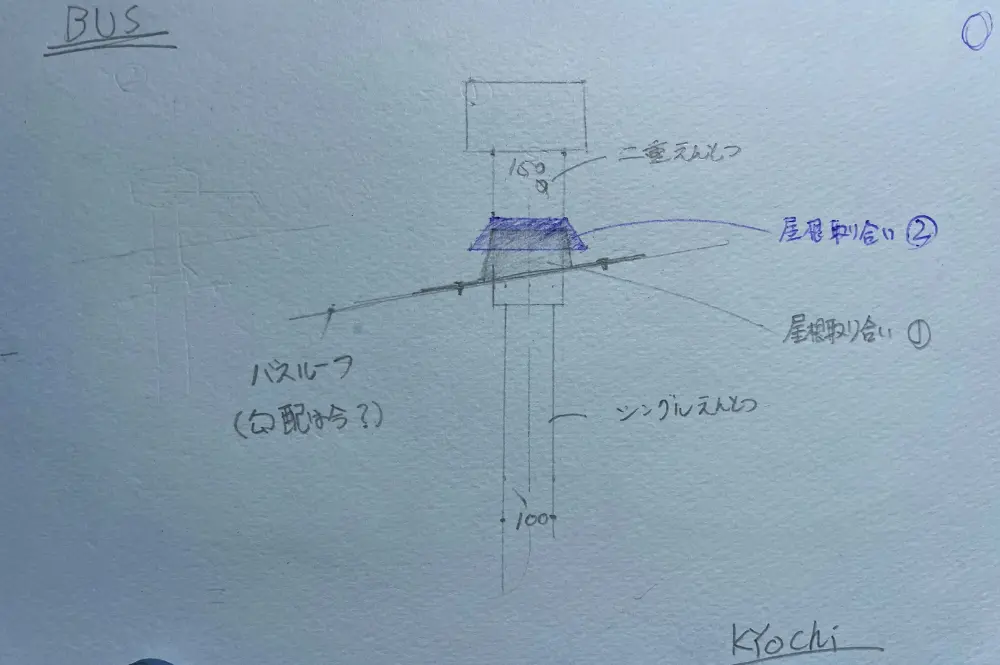 BUS
150
φ
二重えんとつ
屋根取り合い ②
屋根取り合い ①
バスルーフ
(勾配は今?)
シングルえんとつ
100
KYOchi